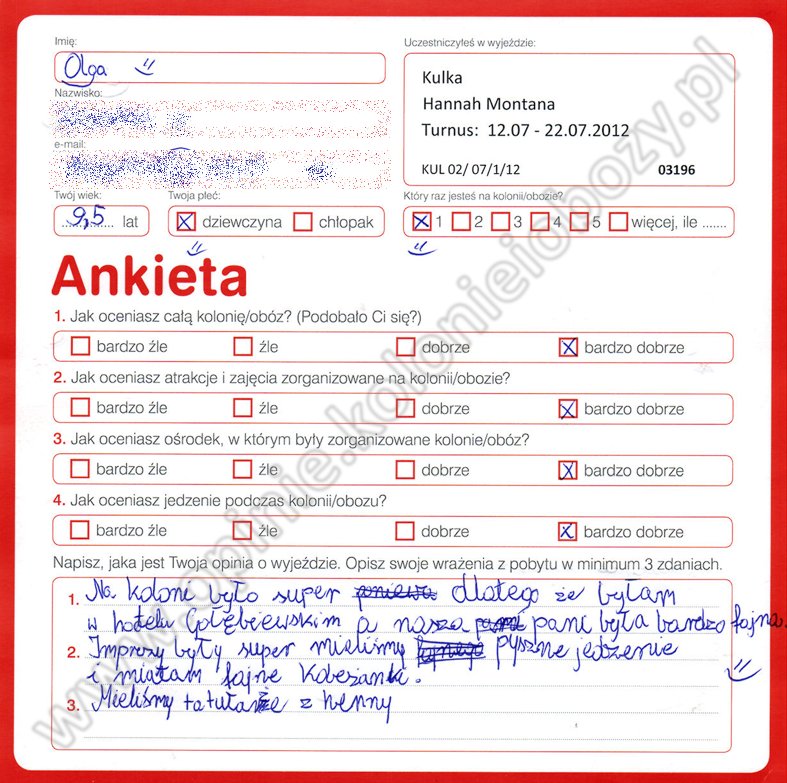 Imię:
Uczestniczyłeś w wyjeździe:
Olga
Kulka
Hannah Montana
Turnus: 12.07 - 22.07.2012
KUL 02/ 07/1/12 03196
Nazwisko:
e-mail:
Twój wiek:
Twoja płeć:
Który raz jesteś na kolonii/obozie?
9,5 lat
dziewczyna chłopak
1 2 3 4 5 więcej, ile .......
Ankieta
1. Jak oceniasz całą kolonię/obóz? (Podobało Ci się?)
bardzo źle źle dobrze bardzo dobrze
2. Jak oceniasz atrakcje i zajęcia zorganizowane na kolonii/obozie?
bardzo źle źle dobrze bardzo dobrze
3. Jak oceniasz ośrodek, w którym były zorganizowane kolonie/obóz?
bardzo źle źle dobrze bardzo dobrze
4. Jak oceniasz jedzenie podczas kolonii/obozu?
bardzo źle źle dobrze bardzo dobrze
Napisz, jaka jest Twoja opinia o wyjeździe. Opisz swoje wrażenia z pobytu w minimum 3 zdaniach.
1. Na koloni było super dlatego że byłam
w hotelu Gołębiewskim a nasza pani była bardzo fajna.
2. Imprezy były super mieliśmy pyszne jedzenie
i miałam fajne koleżanki.
3. Mieliśmy tatułaże z henny
www.opinie.kolonieiobozy.pl